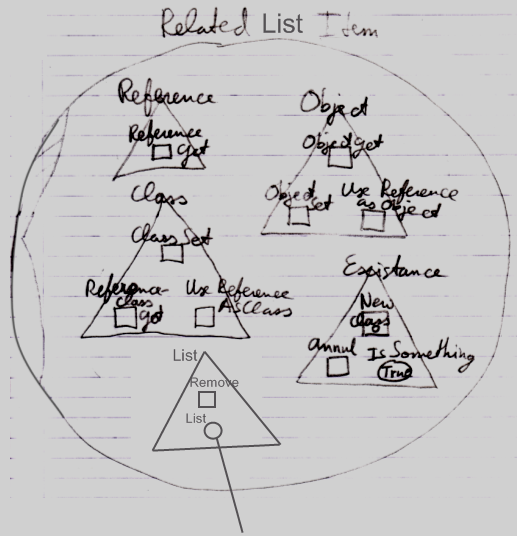 Related List Item
Reference
Reference
Get
Object
Object get
Object
Set
Use Reference
as Object
Class
Class Set
Reference-
class
got
Use Reference
As Class
Existance
New
class
annul
Is Something
True
List
Remove
List